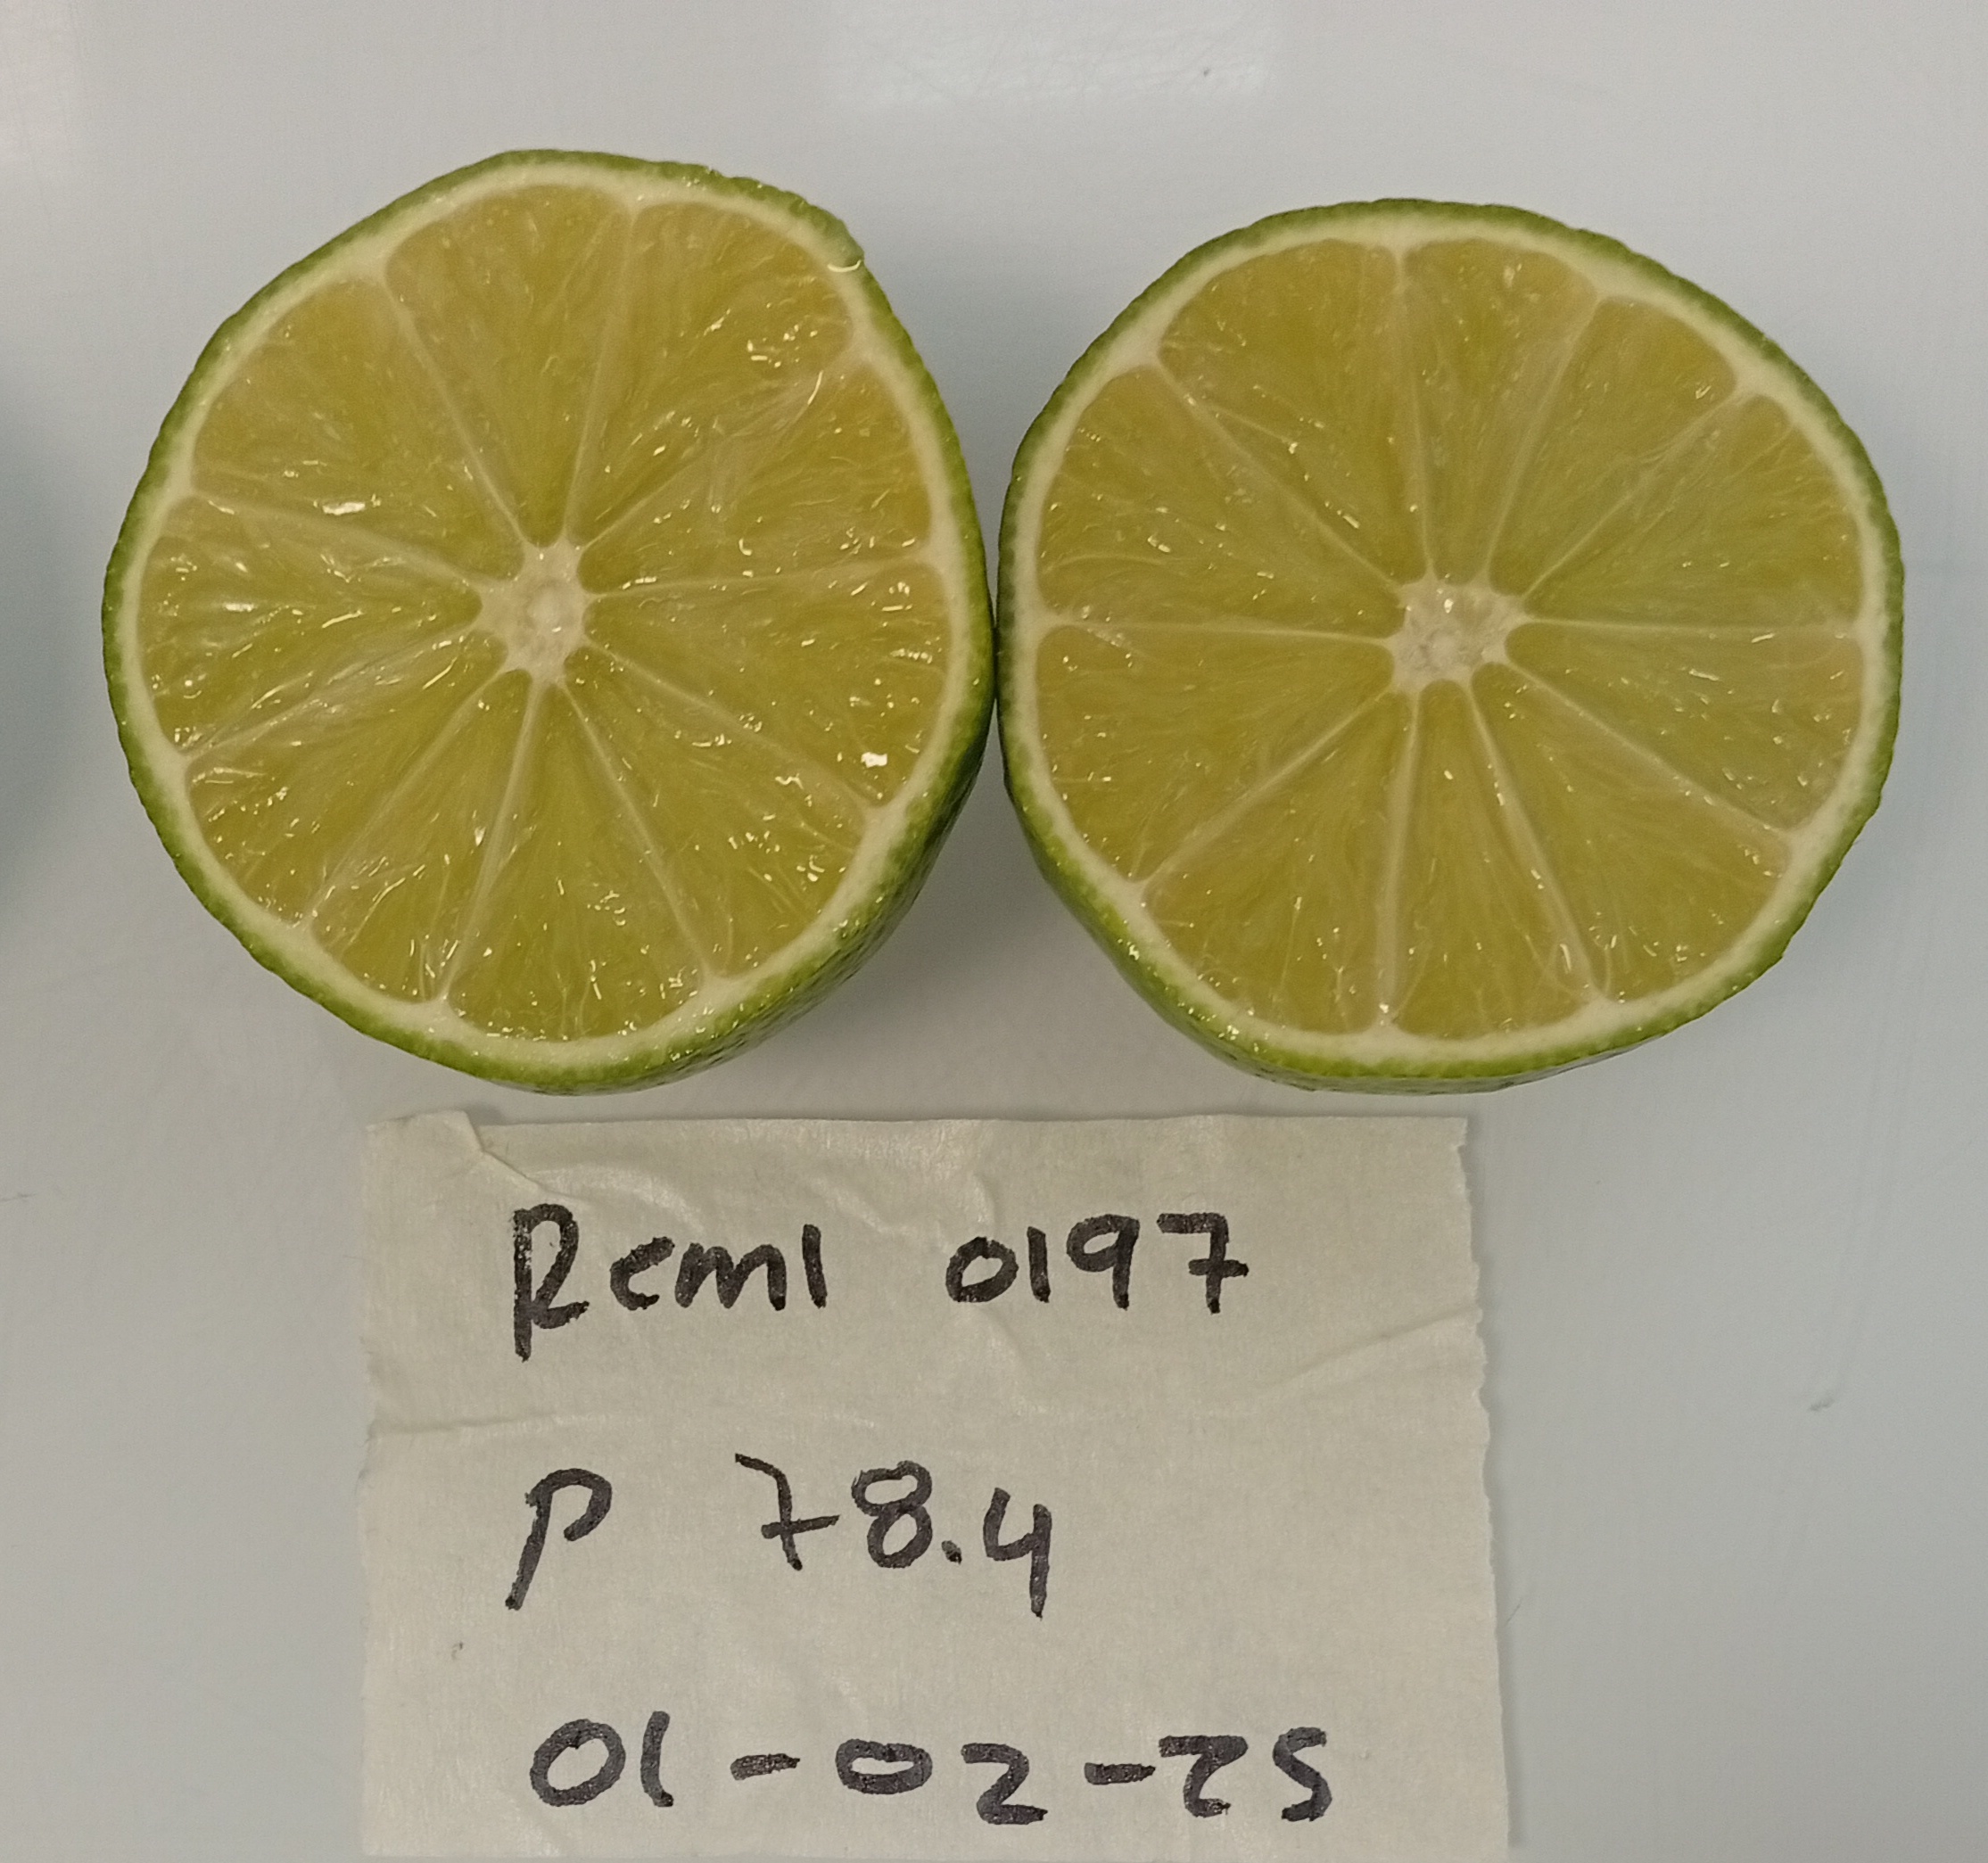 Reml 0197
P 78.4
01-02-25